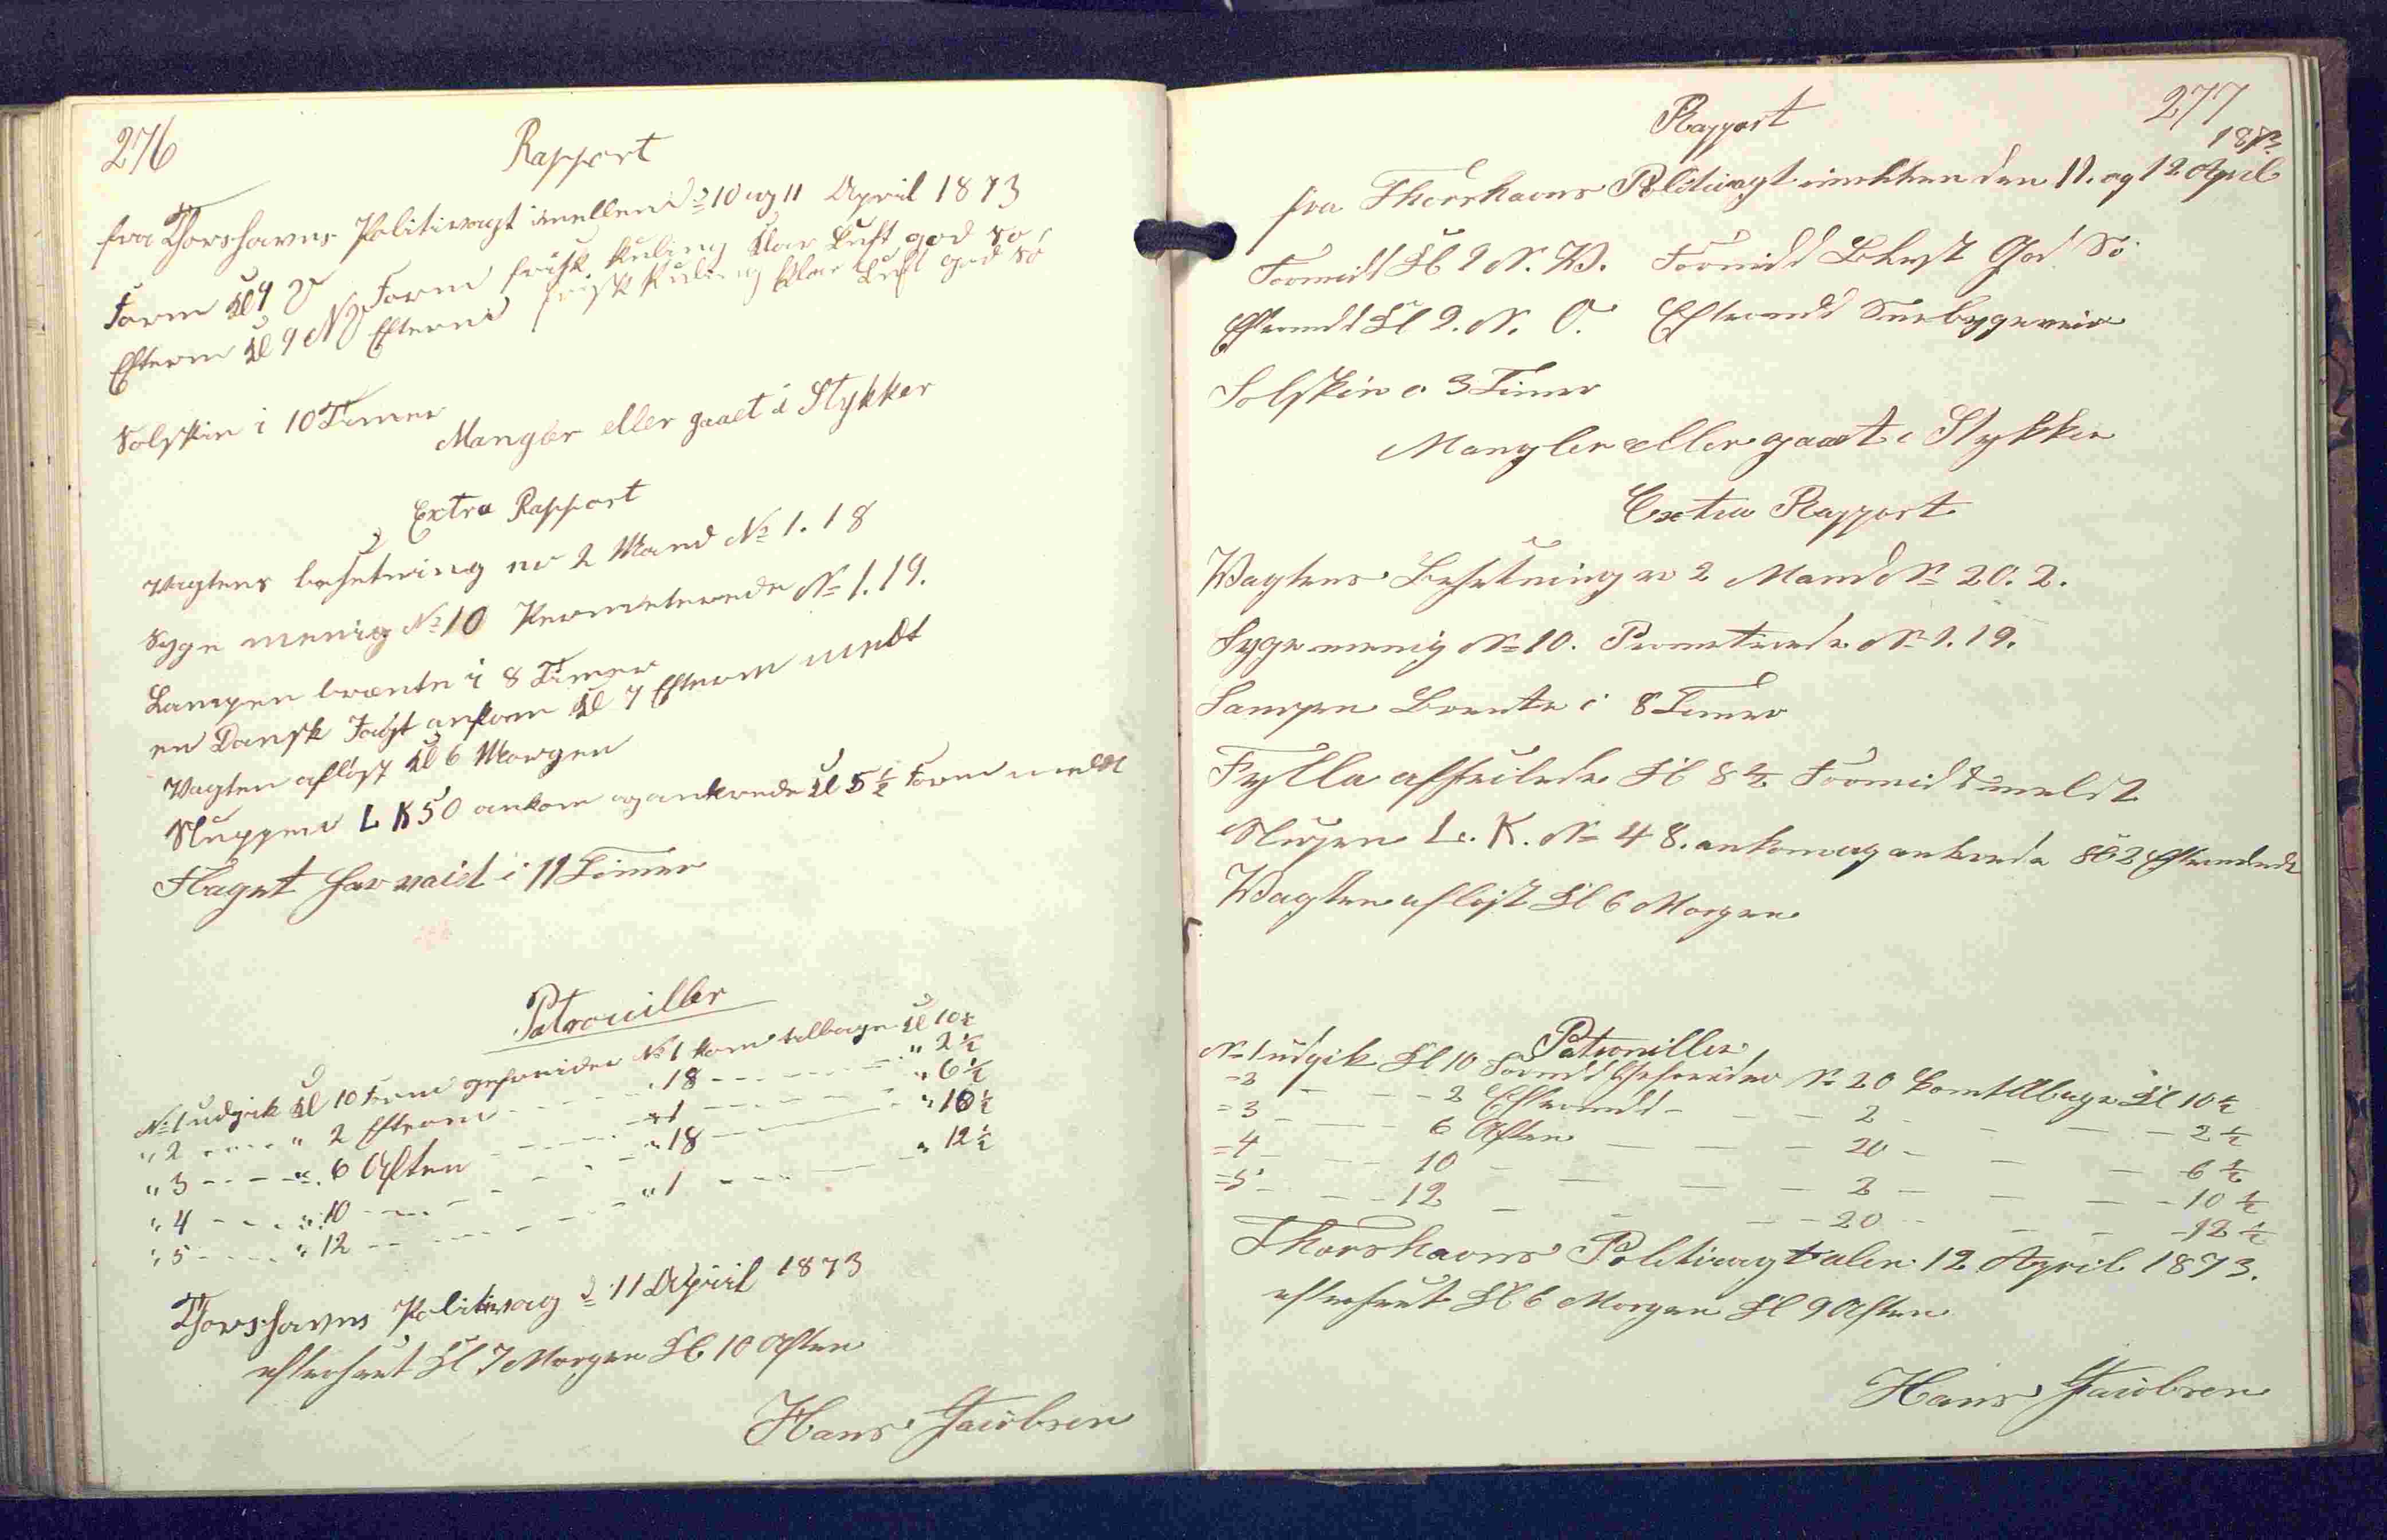 276
Rapport
fra Thorshavns Politivagt imellem d 10 og 11 April 1873
Form Kl 9 V Form frisk Kuling klar Luft god Sö
Efterm Kl 9 NV Efterm frisk Kuling klar Luft god Sö
Solskin i 10 Timer
Mangler eller gaaet i Stykker
Extra Rapport
Vagtens besetning er 2 Mand No 1. 18
Syge menig No 10 Permeterede No 1. 19.
Lampen brænte i 8 Timer
en Dansk Jagt ankom Kl 7 Efterm meldt
Vagten aflöst Kl 6 Morgen
Sluppen L K 50 ankom og ankrede Kl 5 1/2 Form meldt
Flaget har vaiet i 11 Timer
Patrouiller
No 1 udgik Kl 10 Form gefreider No 1 kom tilbage Kl 10 1/2
" 2 - - - " 2 Efterm - - - - 18 - - - - " 2 1/2
" 3 - - - " 6 Aften - - - - " 1 - - - - " 6 1/2
" 4 - - - " 10 - - - - " 18 - - - - " 10 1/2
" 5 - - - " 12 - - - - " 1 - - - - " 12 1/2
Thorshavns Politivag d 11 April 1873
efterseet Kl 7 Morgen Kl 10 Aften
Hans Jacobsen
277
Rapport
1873
fra Thorshavns Politivagt imellem den 11. og 12 April
Formidd Kl 9 N. V. Formidd Löluft God Sö
Eftermidd Kl 9. N. O. Eftermidd Sneebygeveir
Solskin i 3 Timer
Mangler eller gaaet i Stykker
Extra Rapport
Vagtens Besetning er 2 Mand No 20. 2.
Syge menig No 10. Permeterede No 1. 19.
Lampen Brente i 8 Timer
Fylla afseilede Kl 8 1/2 Formidd meldt
Slupen L. K. No 48. ankom og ankrede Kl 2
Vagten aflöst Kl 6 Morgen
Patrouiller
No 1 udgik Kl 10 Formidd Gefreider No 20 kom tilbage Kl 10 1/2
= 2 - - - 2 Eftermidd - - - 2 - - - 2 1/2
= 3 - - - 6 Aften - - - 20 - - - 6 1/2
= 4 - - - 10 - - - 2 - - - 10 1/2
= 5 - - - 12 - - - 20 - - - 12 1/2
Thorshavns Politivagt den 12 April 1873.
efterseet Kl 6 Morgen Kl 9 Aften
Hans Jacobsen